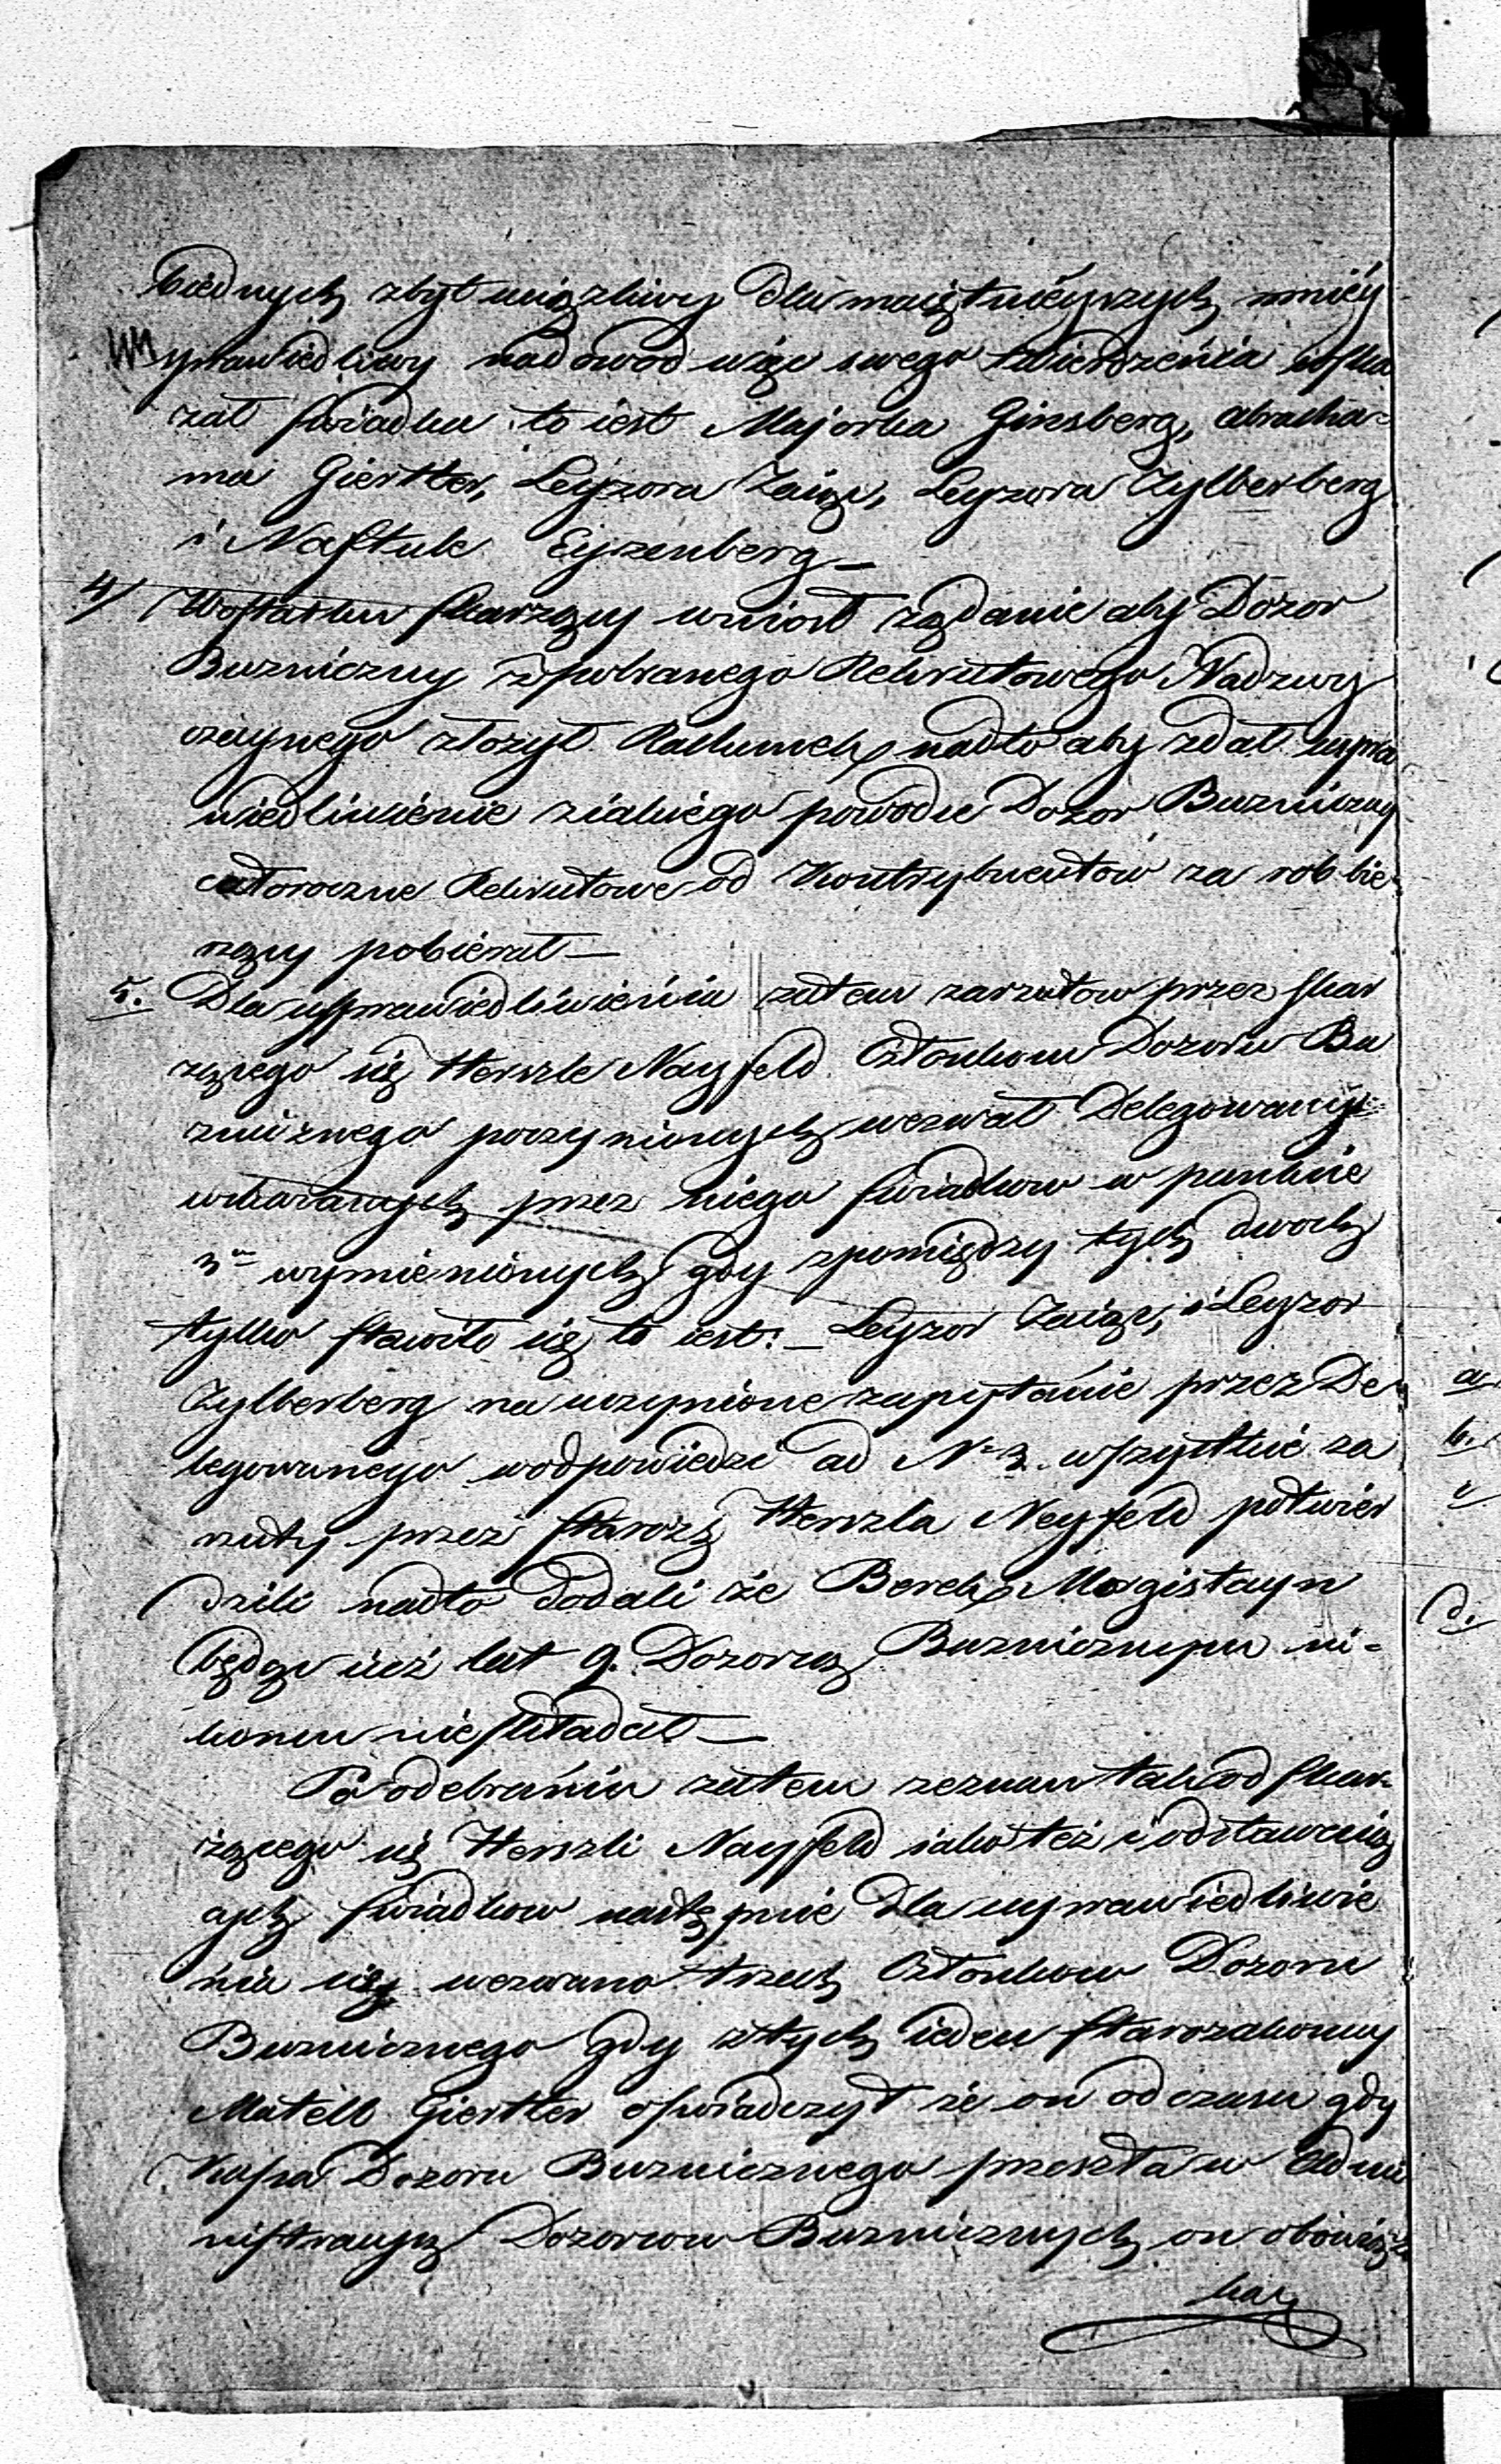 biednych zbyt uciążliwy dla maiętnieyszych mniey
sprawiedliwy nadowod więc swego twierdzenia wska
zał swiadka to iest Majorka Ginsberg, Abraha-
ma Giertler, Leyzora Zaiąc, Leyzora Zylberberg
i Naftule Eyzenberg —
4/ Wostatku skarzący wniosł rządanie aby Dozor
Bużniczny zpobranego Rekrutowego Nadzwy
czaynego złozył Rachunek, nadto aby zdał uspra
wiedliwienie ziakiego powodu Dozor Bużniczny
całoroczne Rekrutowe od Kontrybuentow za rok bie
rzący pobierał —
5. Dla usprawiedliwienia zatem zarzutow przez skar
zącego się Herszle Nayfeld Członkom Dozoru Bu
znicznego poczynionych wezwał Delegowany
wskazanych przez niego swiadkow w punkcie
3m wymienionych gdy zpomiędzy tych dwoch
tylko stawiło się to iest: — Leyzor Zaiąc, i Leyzor
Zylberberg na uczynione zapytanie przez De
legowanego wodpowiedzi ad No 3. wszystkie za
rzuty przez starozz Herszla Neyfeld potwier
dzili nadto dodali że Berek Morgistayn
będąc iuż lat 9. Dozorcą Buznicznym ni-
komu nieskładał —
Po odebraniu zatem zeznan tak od skar-
żącego się Herszli Nayfeld iako też i odstawaią
cych swiadkow następnie dla usprawiedliwie
nia się wezwano trzech Członkow Dozoru
Buznicznego gdy ztych ieden starozakonny
Matell Giertler oswiadczył że on od czasu gdy
Kassa Dozoru Buznicznego przeszła w Admi
nistracyą Dozorcow Buznicznych on obowiąz
a
b.
c
d.